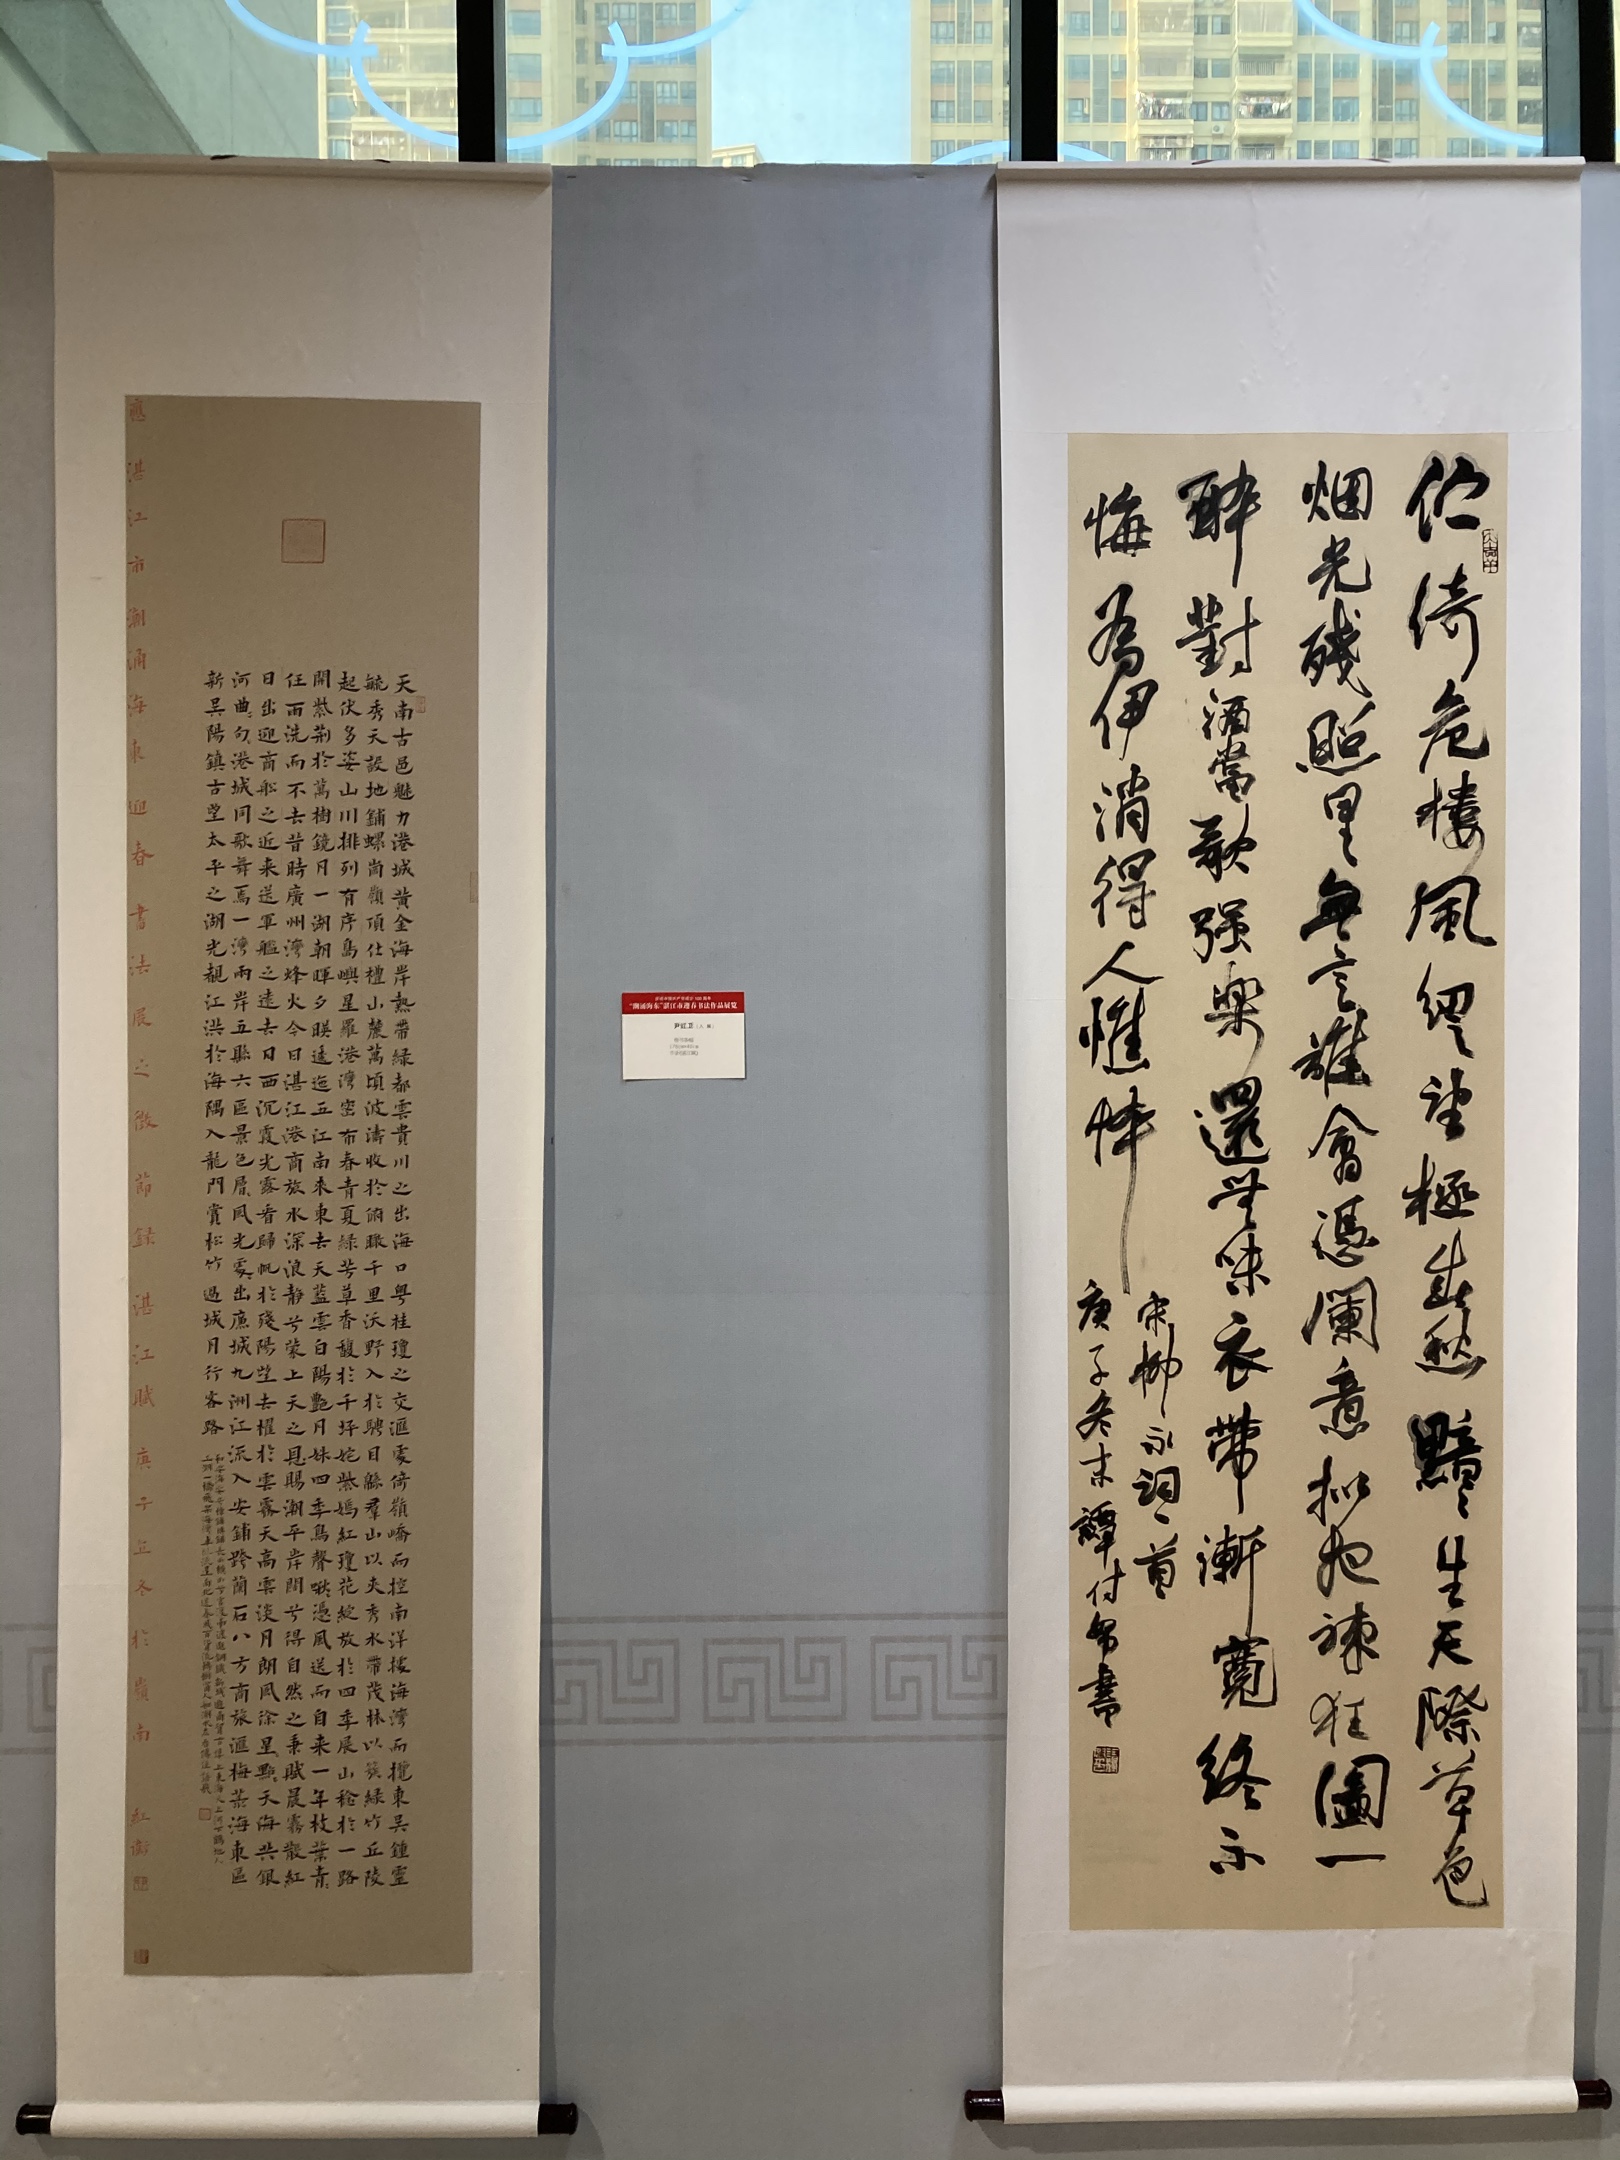 伫倚危樓風細〻望極春愁黯〻生天際草色
烟光残照里無言誰會憑闌意拟把疎狂圖一
醉對酒當歌强樂還無味衣帶漸寬終不
悔為伊消得人憔悴
宋柳永詞一首
庚子冬末譚付努書
庆祝中国共产党成立100周年
“潮涌海东”湛江市迎春书法作品展览
尹红卫（入展）
天南古邑魅力港城黄金海岸熱帶緑都雲貴川之出海口粤桂瓊之交滙處倚嶺嶠而控南洋據海灣而攬東吴鍾靈
毓秀天設地鋪螺崗嶺頂仕禮山麓萬頃波濤收於俯瞰千里沃野入於騁目緜羣山以夾秀水帶茂林以簇緑竹丘陵
起伏多姿山川排列有序島嶼星羅港灣密布春青夏緑芳草香馥於千坪姹紫嫣紅瓊花綻放於四季展山稔於一路
開紫荆於萬樹鏡月一湖朝暉夕暎逶迤五江南来東去天藍雲白陽艷月姝四季鳥聲啾〻憑風送而自来一年枝葉青〻
任雨洗而不去昔時廣州灣烽火今日湛江港商旅水深浪静兮蒙上天之恩賜潮平岸闊兮得自然之秉賦晨霧散紅
日出迎商船之近来送軍艦之遠去日西沉霞光露看歸帆於殘陽望去櫂於雲霧天高雲淡月朗風徐星點〻天海共銀
河曲〻勾〻港城同歌舞焉一灣兩岸五縣六區景色層〻風光處〻出廉城九洲江流入安鋪跨蘭石八方商旅滙梅菉海東區
新吴陽鎮古望太平之湖光覩江洪於海隅入龍門賞松竹過城月行客路
應湛江市潮涌海東迎春書法展之徵節録湛江賦庚子立冬於嶺南紅衛